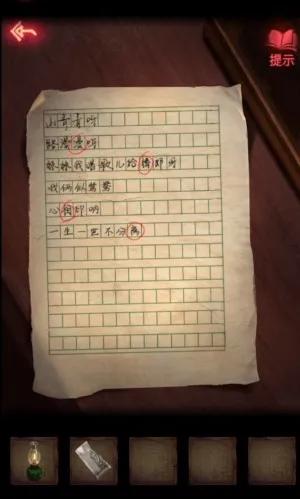 提示
山青青呀
路漫漫呀
妹妹我唱歌儿给情郎听
我俩似鸳鸯
心相印呀
一生一世不分离